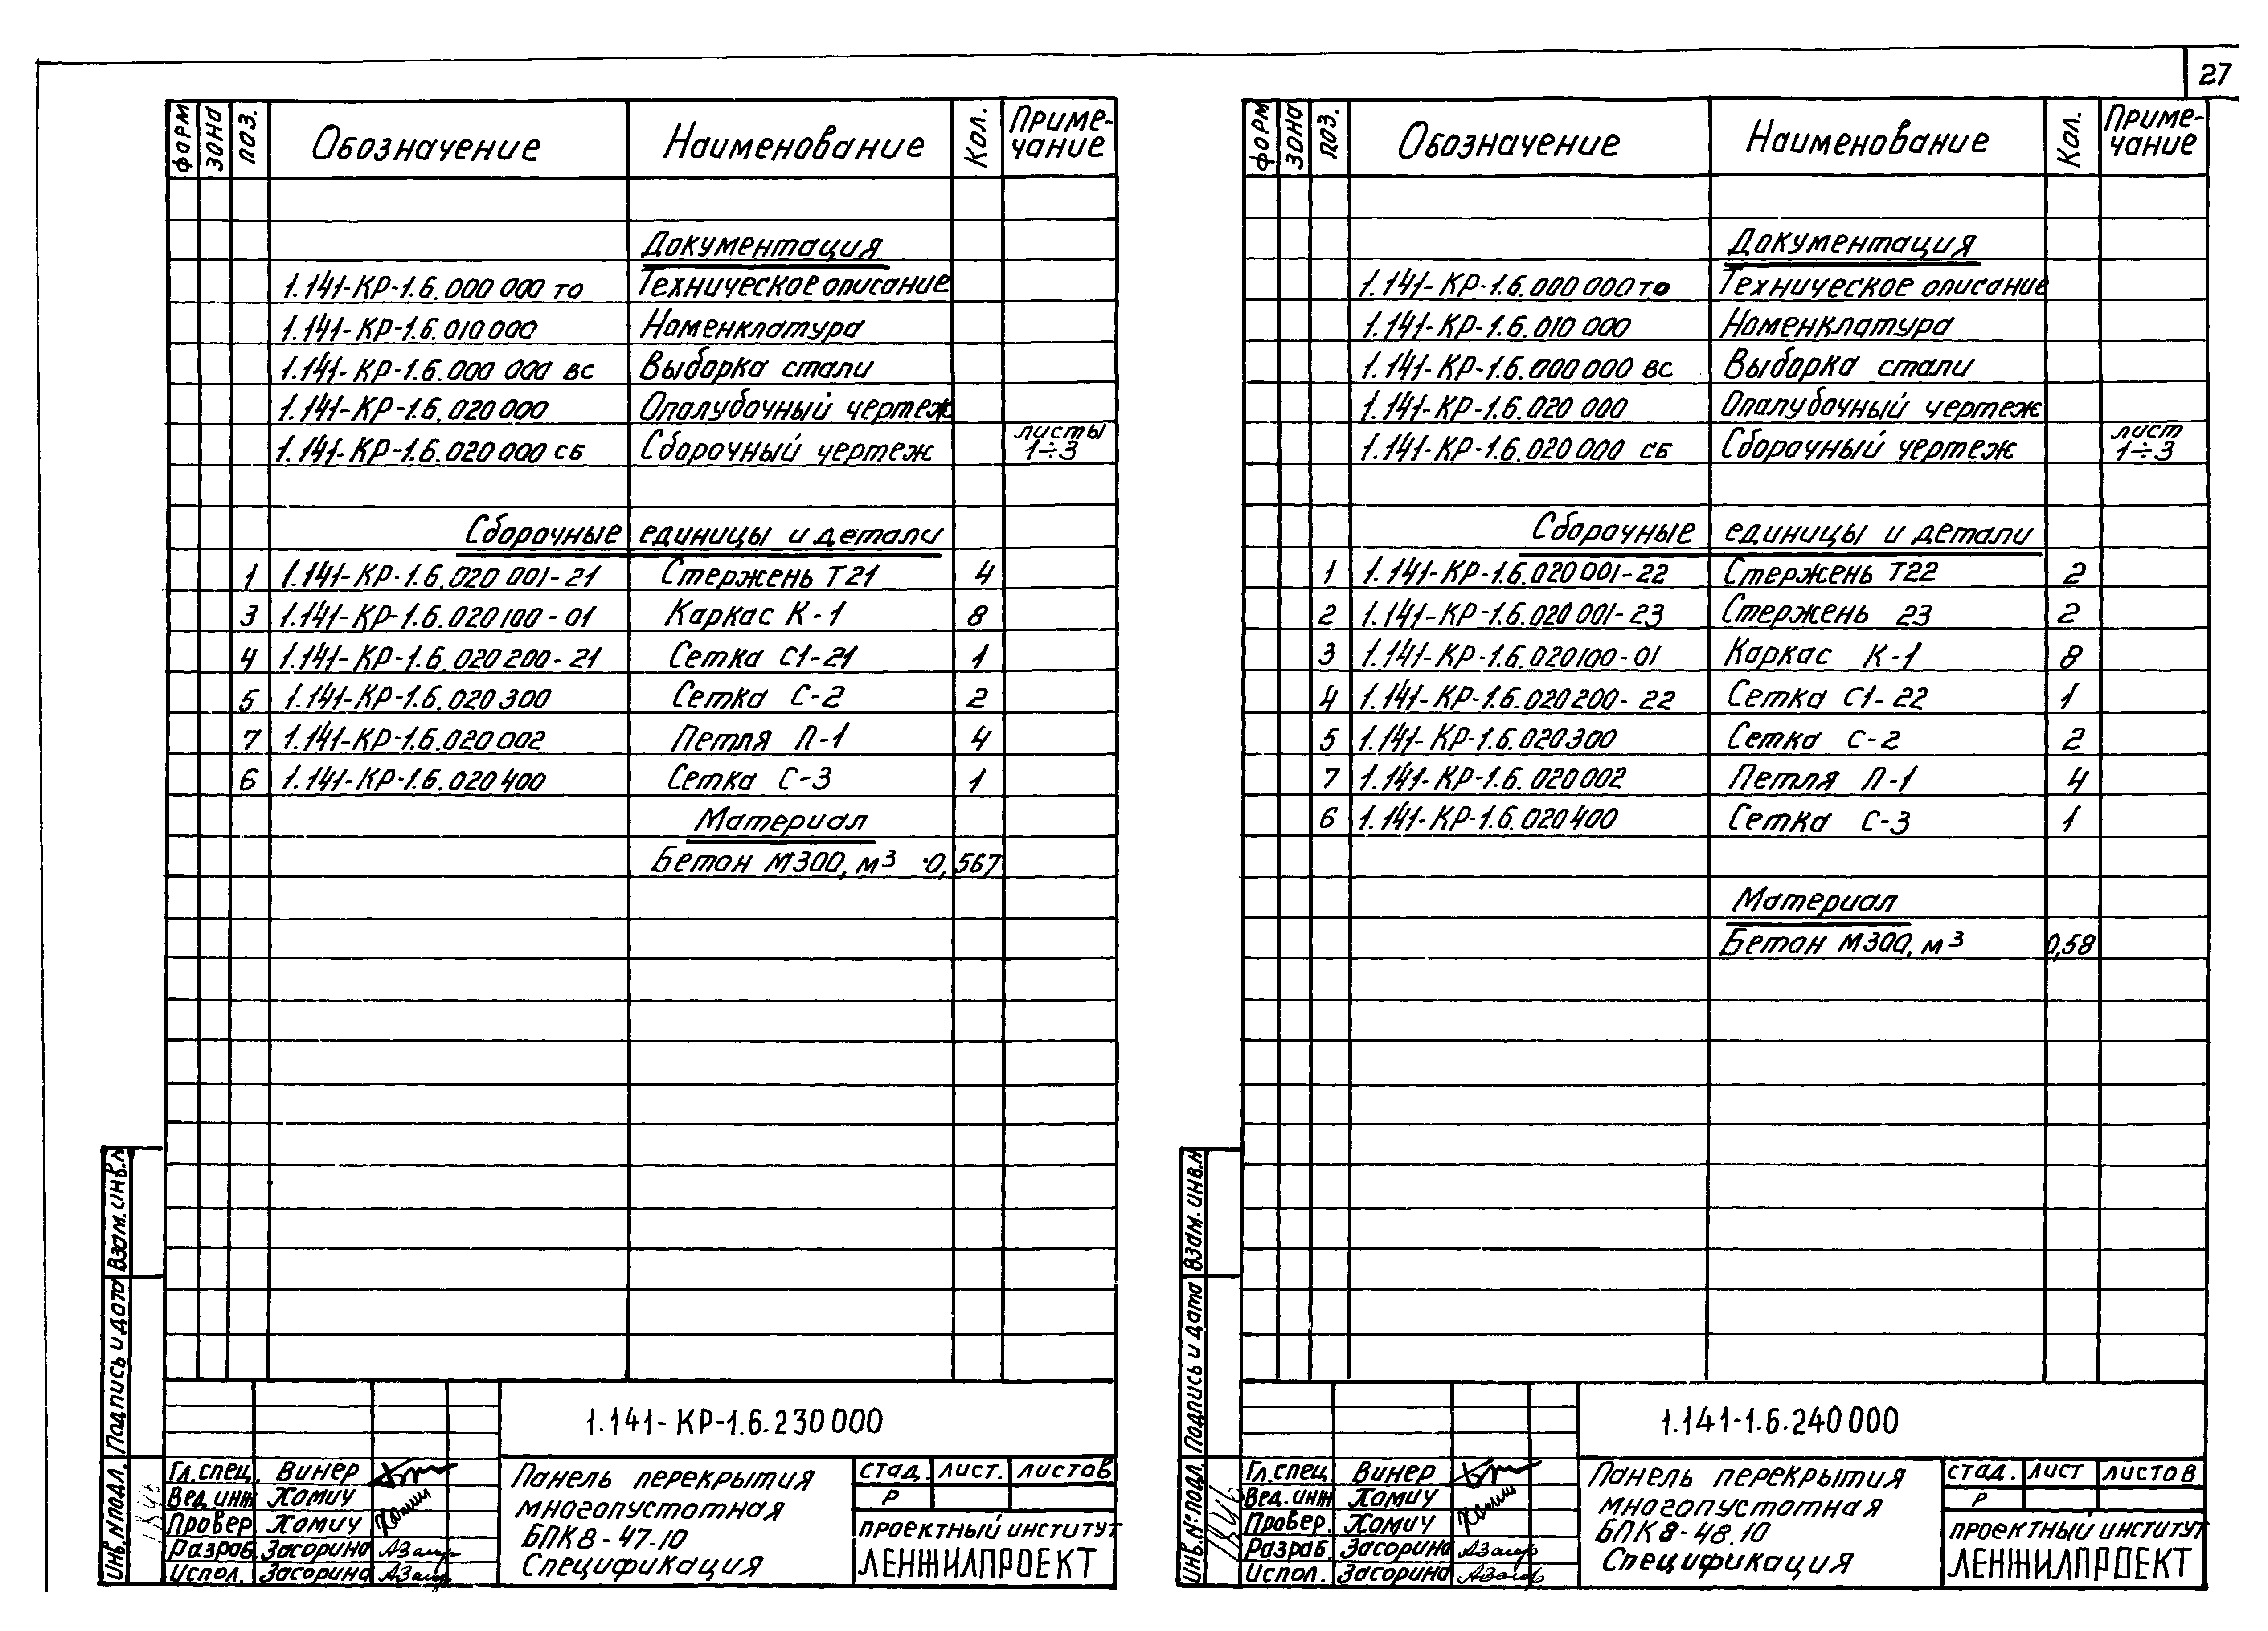 27
форм зона поз. Обозначение Наименование Кол. Приме-
чание
Документация
1.141-КР-1.6.000 000 то Техническое описание
1.141-КР-1.6.010 000 Номенклатура
1.141-КР-1.6.000 000 вс Выборка стали
1.141-КР-1.6.020 000 Опалубочный чертеж
1.141-КР-1.6.020 000 сб Сборочный чертеж листы
1÷3
Сборочные единицы и детали
1 1.141-КР-1.6.020 001-21 Стержень Т21 4
3 1.141-КР-1.6.020100-01 Каркас К-1 8
4 1.141-КР-1.6.020200-21 Сетка С1-21 1
5 1.141-КР-1.6.020300 Сетка С-2 2
7 1.141-КР-1.6.020 002 Петля П-1 4
6 1.141-КР-1.6.020400 Сетка С-3 1
Материал
Бетон М300, м³ 0,567
Взам. инв. №
Подпись и дата
Инв. № подл.
1.141-КР-1.6.230000
Гл. спец. Винер
Вед. инж Хомич
Провер Хомич
Разраб. Засорина АЗасор
Испол. Засорина АЗасор
Панель перекрытия
многопустотная
БПК8-47.10
Спецификация
стад. лист. листов
Р
ПРОЕКТНЫЙ ИНСТИТУТ
ЛЕНЖИЛПРОЕКТ
форм зона поз. Обозначение Наименование Кол. Приме-
чание
Документация
1.141-КР-1.6.000 000 то Техническое описание
1.141-КР-1.6.010 000 Номенклатура
1.141-КР-1.6.000 000 вс Выборка стали
1.141-КР-1.6.020 000 Опалубочный чертеж
1.141-КР-1.6.020 000 сб Сборочный чертеж лист
1÷3
Сборочные единицы и детали
1 1.141-КР-1.6.020 001-22 Стержень Т22 2
2 1.141-КР-1.6.020 001-23 Стержень 23 2
3 1.141-КР-1.6.020100-01 Каркас К-1 8
4 1.141-КР-1.6.020200-22 Сетка С1-22 1
5 1.141-КР-1.6.020300 Сетка С-2 2
7 1.141-КР-1.6.020002 Петля П-1 4
6 1.141-КР-1.6.020400 Сетка С-3 1
Материал
Бетон М300, м³ 0,58
Взам. инв. №
Подпись и дата
Инв. № подл.
1.141-1.6.240000
Гл. спец. Винер
Вед. инж Хомич
Провер. Хомич
Разраб. Засорина АЗасор
Испол. Засорина АЗасор
Панель перекрытия
многопустотная
БПК8-48.10
Спецификация
стад. лист листов
Р
ПРОЕКТНЫЙ ИНСТИТУТ
ЛЕНЖИЛПРОЕКТ